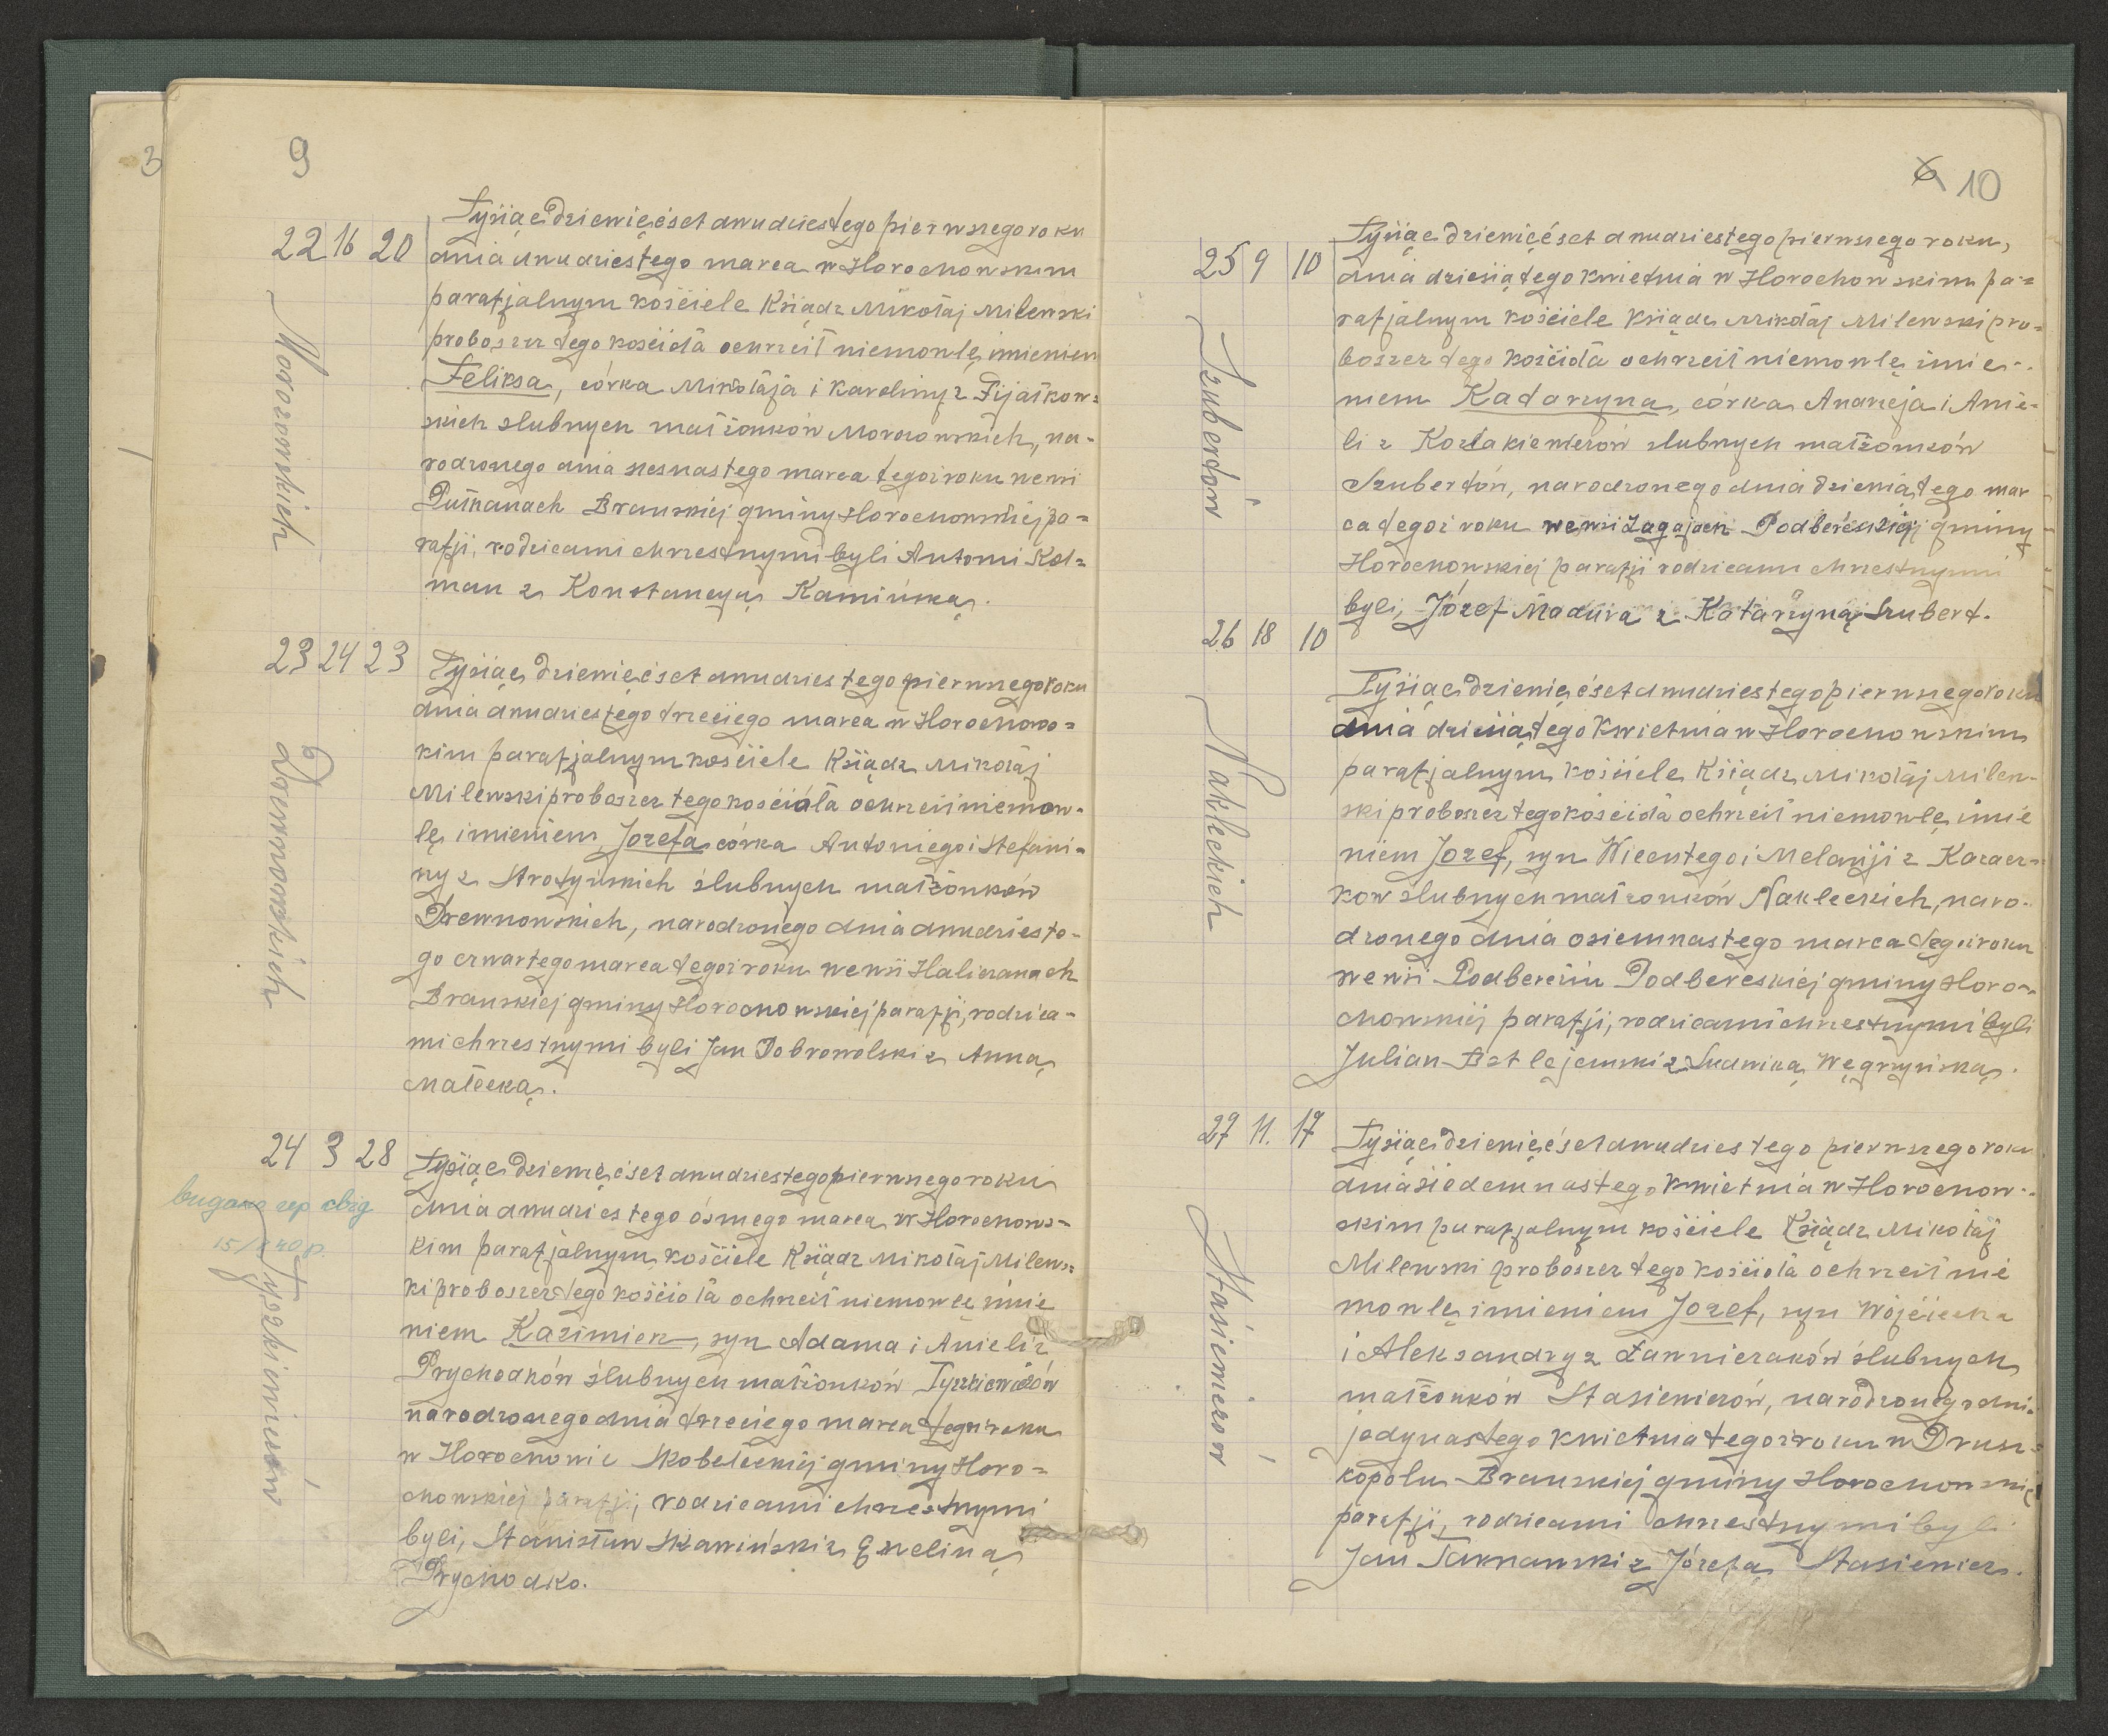 3
9
Tysiąc dziewięćset dwudziestego pierwszego roku
22 16 20
dnia dwudziestego marca w Horochowskim
parafjalnym kościele Ksiądz Mikołaj Milewski
proboszcz tego kościoła ochrzcił niemowlę imieniem
Feliksa, córka Mikołaja i Karoliny z Fijałkow=
skich slubnych małżonków Morozowskich, na-
rodzonego dnia szesnastego marca tegoż roku we wsi
Pułhanach Brańskiej gminy Horochowskiej pa=
rafji, rodzicami chrzestnymi byli Antoni Kol=
man z Konstancyą Kamińską.
Morozowskich
23 24 23
Tysiąc dziewięćset dwudziestego pierwszego roku
dnia dwudziestego trzeciego marca w Horochows=
kim parafjalnym kościele Ksiądz Mikołaj
Milewski proboszcz tego kościoła ochrzcił niemow-
lę imieniem Jozefa córka Antoniego i Stefani-
ny z Strotyńskich ślubnych małżonków
Drewnowskich, narodzonego dnia dwudzieste-
go czwartego marca tegoż roku we wsi Haliczanach
Brańskiej gminy Horochowskiej parafji, rodzica-
mi chrzestnymi byli Jan Dobrowolski z Anną
Małecką.
Drewnowskich
24 3 28
Tysiąc dziewięćset dwudziestego pierwszego roku
dnia dwudziestego ósmego marca w Horochows=
kim parafjalnym kościele Ksiądz Mikołaj Milews=
ki proboszcz tego kościoła ochrzcił niemowlę imie
niem Kazimierz, syn Adama i Anieli z
Prychodków ślubnych małżonków Tyszkiewiczów
narodzonego dnia trzeciego marca tegoż roku
w Horochowie Skobełeckiej gminy Horo=
chowskiej parafji, rodzicami chrzestnymi
byli, Stanisław Skawiński z Ewelina
Prychodko.
Tyszkiewiczów
6 10
Tysiąc dziewięćset dwudziestego pierwszego roku,
25 9 10
dnia dziesiątego kwietnia w Horochowskim pa=
rafjalnym kościele Ksiądz Mikołaj Milewski pro=
boszcz tego kościoła ochrzcił niemowlę imie-
niem Katarzyna, córka Andrzeja i Anie-
li z Kozłakiewiczów slubnych małżonków
Szubertów, narodzonego dnia dziewiątego mar
ca tegoż roku we wsi Zagajach Podbereskiej gminy
Horochowskiej parafji rodzicami chrzestnymi
byli, Józef Madura z Katarzyną Szubert.
Szubertów
26 18 10
Tysiąc dziewięćset dwudziestego pierwszego roku
dnia dziesiątego kwietnia w Horochowskim
parafjalnym kościele Ksiądz Mikołaj Milew-
ski proboszcz tego kościoła ochrzcił niemowlę imie
niem Jozef, syn Wicentego i Melanji z Kazacz-
kow slubnych małżonków Nakleckich, naro-
dzonego dnia osiemnastego marca tegoż roku
we wsi Podbereżiu Podbereskiej gminy Horo-
chowskiej parafji, rodzicami chrzestnymi byli
Julian Betlejemski z Ludwiką Węgrzyńską.
Nakleckich
27 11. 17
Tysiąc dziewięćset dwudziestego pierwszego roku
dnia siedemnastego kwietnia w Horochow-
skim parafjalnym kościele Ksiądz Mikołaj
Milewski proboszcz tego kościoła ochrzcił nie
mowlę imieniem Jozef, syn Wojciecha
i Aleksandry z Ławniczaków ślubnych
małżonków Stasiewiczów, narodzonego dnia
jedynastego kwietnia tegoż roku w Drus=
kopolu Brańskiej gminy Horochowskiej
parafji, rodzicami chrzestnymi byli
Jan Tarnawski z Józefą Stasiewicz.
Stasiewiczów